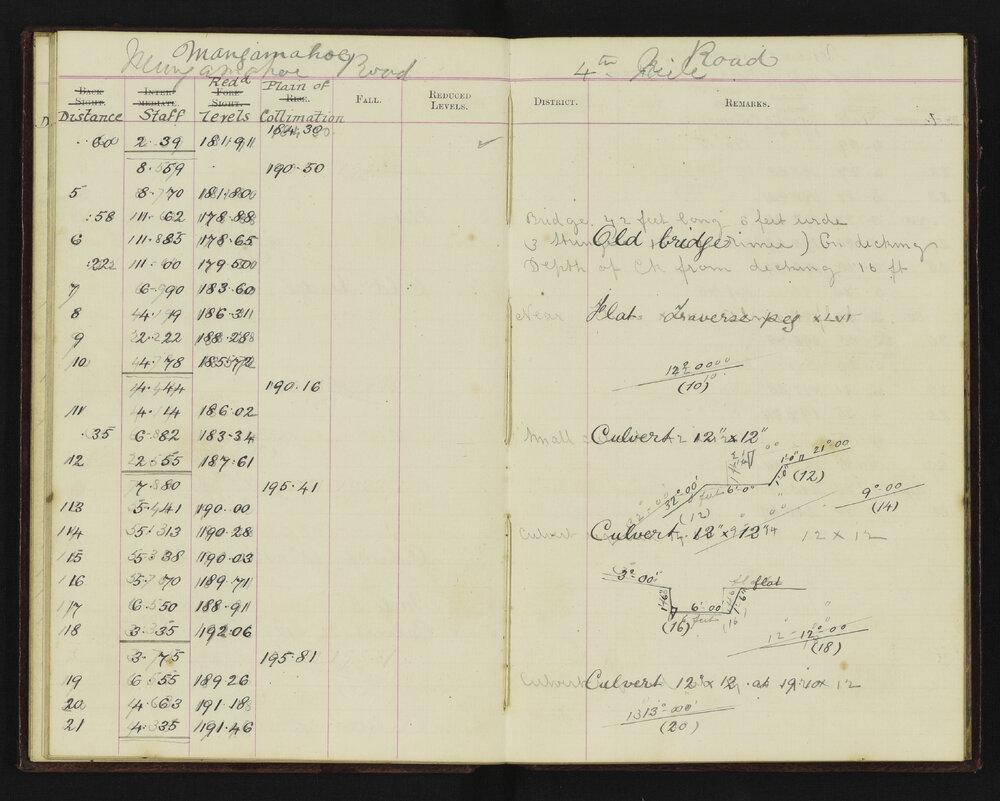 Mangamahoe Road
4th Mile Road
Back Sight. Inter mediate. Fore Sight. Rise. Fall. Reduced Levels. District. Remarks.
Distance Staff Redd Levels Plain of Collimation
184·30
·60 2·39 181·91
8·59 190·50
5 8·70 181·80
·58 11·62 178·88
Bridge 42 feet long 8 feet wide
6 11·85 178·65
Old bridge On decking
·22 11·00 179·50
Depth of Ck from decking 16 ft
7 6·90 183·60
8 4·19 186·31
Near Flat Traverse peg XLVI
9 2·22 188·28
10 4·78 185·72
12°00'
(10)
4·44 190·16
11 4·14 186·02
·35 6·82 183·34
Small Culvert 12" x 12"
12 2·55 187·61
21°00
(12)
7·80 195·41
32°00'
6·0"
(12)
9°00
(14)
13 5·41 190·00
14 5·13 190·28
Culvert 12" x 12" 12 x 12
15 5·38 190·03
16 5·70 189·71
3°00' flat
17 6·50 188·91
1·6" 6·00 1·6"
(16)
18 3·35 192·06
12°00
(18)
3·75 195·81
19 6·55 189·26
Culvert 12" x 12 at 19·10
20 4·63 191·18
13°00'
(20)
21 4·35 191·46